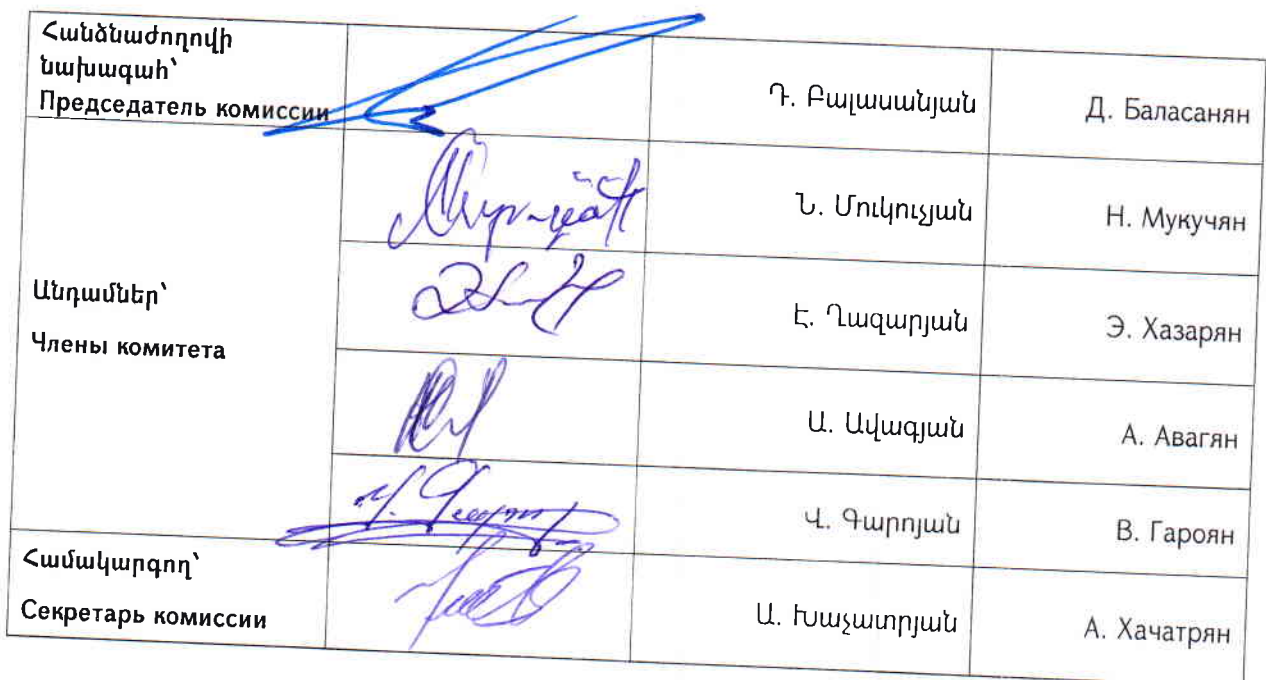 Հանձնաժողովի
նախագահ՝
Председатель комиссии
Դ. Բալասանյան
Д. Баласанян
Ն. Մուկուչյան
Н. Мукучян
Անդամներ՝
Члены комитета
Է. Ղազարյան
Э. Хазарян
Ա. Ավագյան
А. Авагян
Վ. Գարոյան
В. Гароян
Համակարգող՝
Секретарь комиссии
Ա. Խաչատրյան
А. Хачатрян